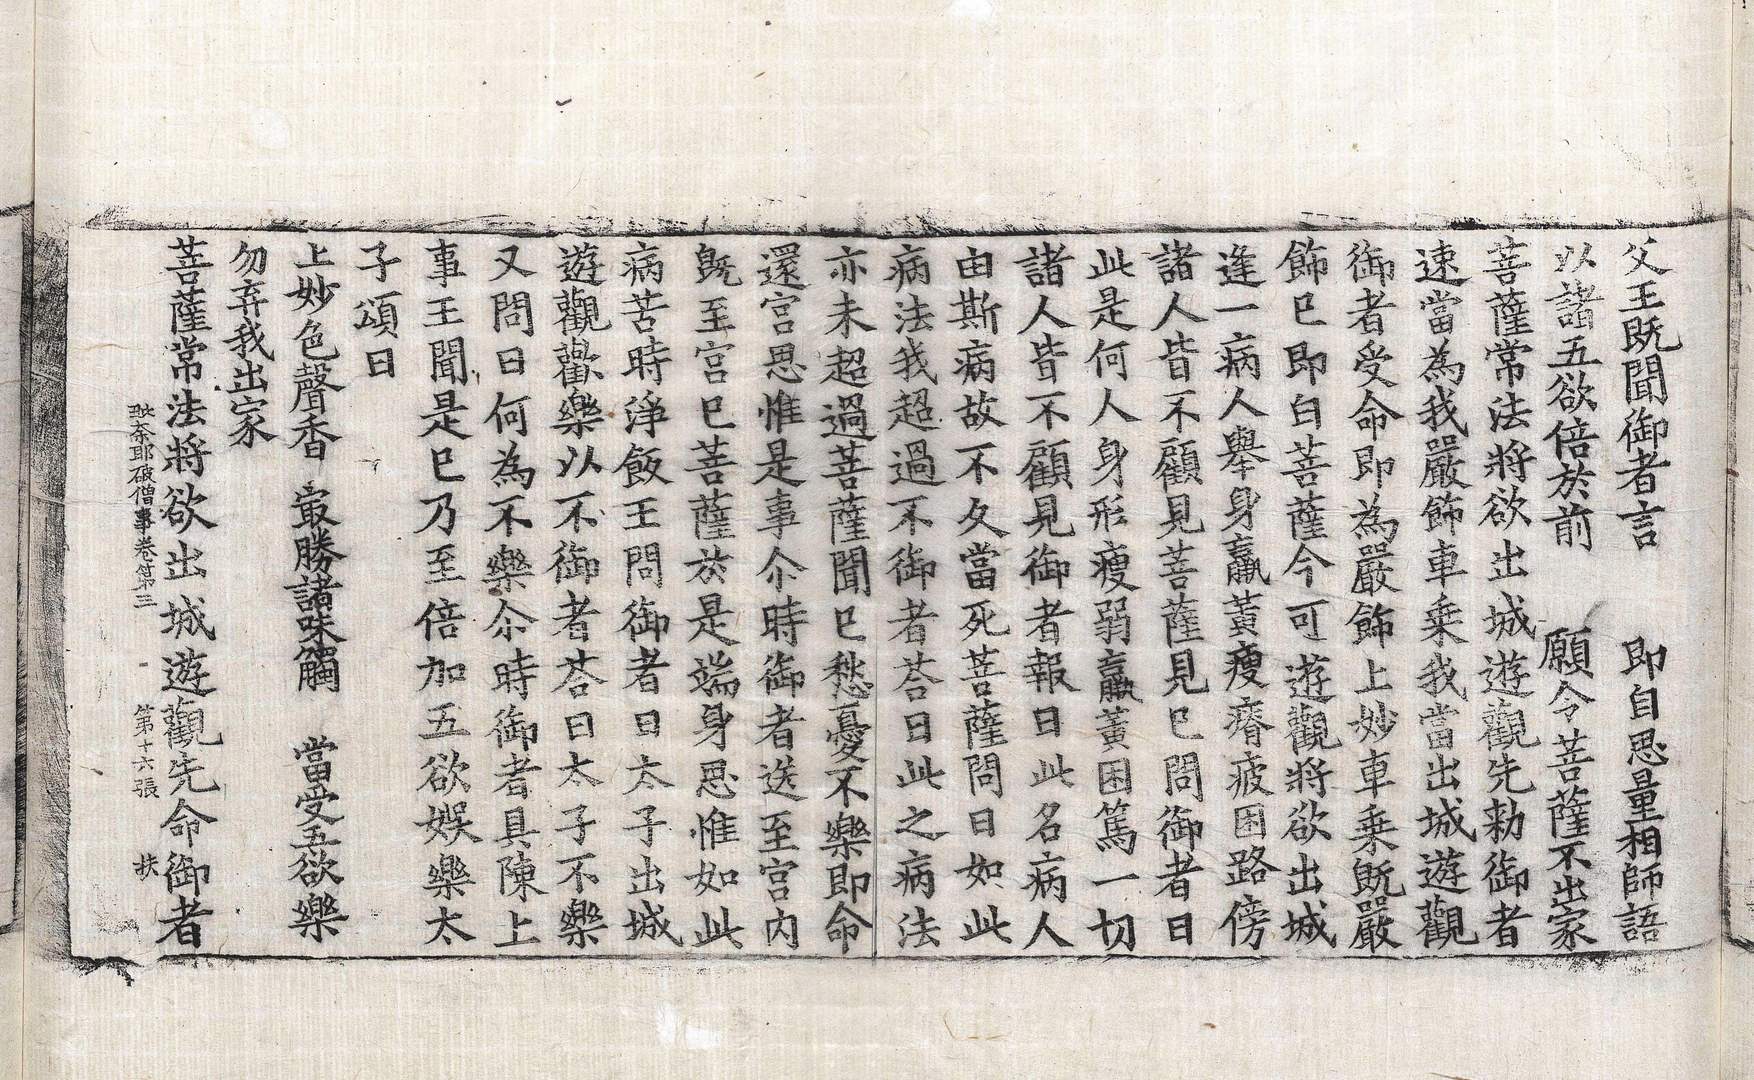 父王既聞御者言　即自思量相師語
以諸五欲倍於前　願令菩薩不出家
菩薩常法將欲出城遊觀先勑御者
速當為我嚴飾車乗我當出城遊觀
御者受命即為嚴飾上妙車乗既嚴
飾已即白菩薩今可遊觀將欲出城
逢一病人舉身羸黃瘦瘠疲困路傍
諸人皆不顧見菩薩見已問御者曰
此是何人身形瘦弱羸黃困篤一切
諸人皆不顧見御者報曰此名病人
由斯病故不久當死菩薩問曰如此
病法我超過不御者荅曰此之病法
亦未超過菩薩聞已愁憂不樂即命
還宮思惟是事尒時御者送至宮內
既至宮已菩薩於是端身思惟如此
病苦時淨飯王問御者曰太子出城
遊觀歡樂以不御者荅曰太子不樂
又問曰何為不樂尒時御者具陳上
事王聞是已乃至倍加五欲娛樂太
子頌曰
上妙色聲香　冣勝諸味觸　當受五欲樂
勿弃我出家
菩薩常法將欲出城遊觀先命御者
奈耶破僧事卷第三　第十六張　扶